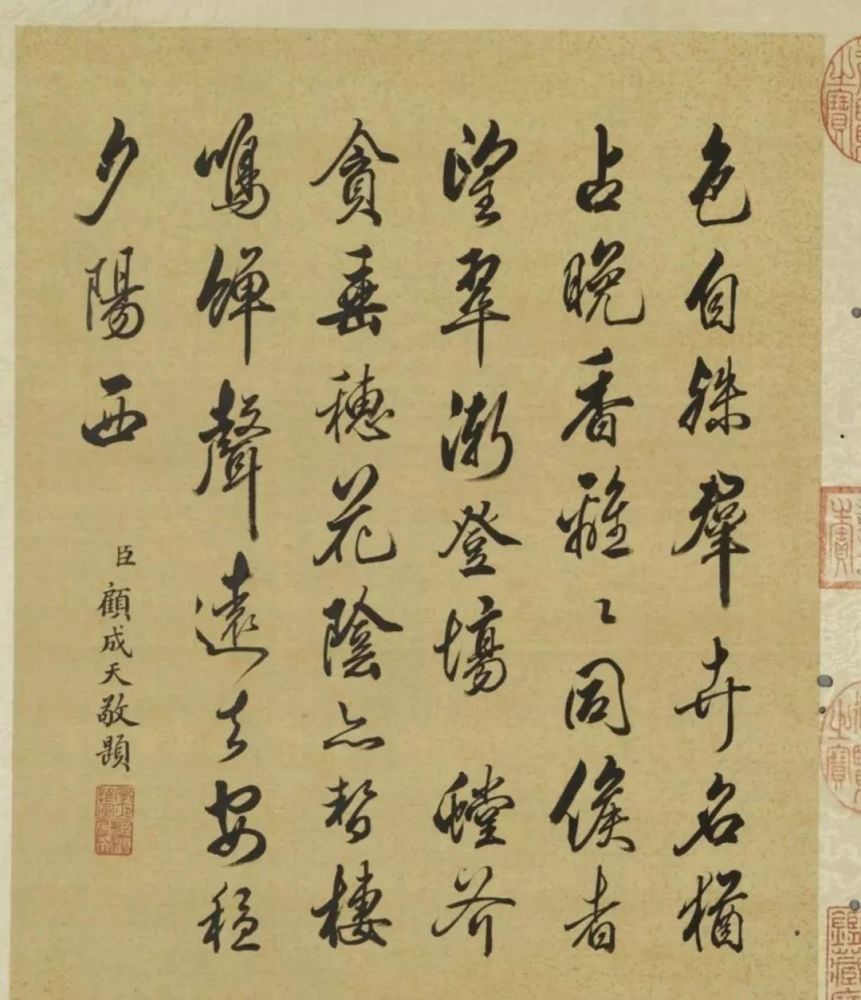 色自殊羣卉名猶
占晚香離〻同候者
望翠漸登場 螳斧
貪垂穗花陰亦暫棲
鳴蟬聲遠去安穩
夕陽西
臣顧成天敬題